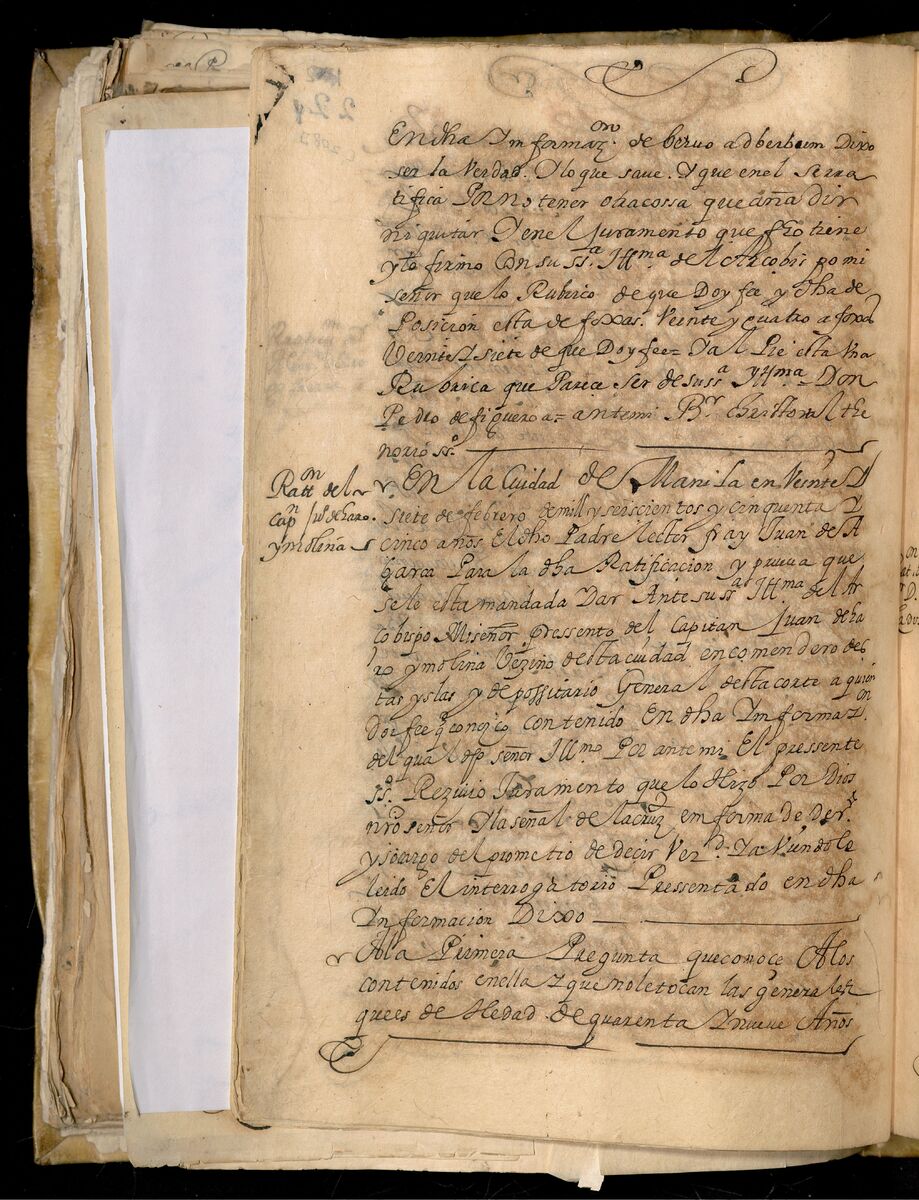 En dha Ynformazon. de bervo adberbum Dixo
ser la Verdad. Y lo que save. Y que en el se rra
tifica Por no tener otra cossa que aña dir
ni quitar Y en el Juramento que fho tiene
y lo firmo Con su ssa. Yllma. del Arcobispo mi
señor que lo Rubrico de que Doy fee y dha de
Posicion esta de foxas. Veinte y quatro a foxas
Veinte Y siete de que Doy fee= Y al Pie esta Vna
Rubrica que Parece ser de su ssa Yllma= Don
Pedro de figueroa= ante mi Br. Christoval the
norio sso.
Ratton del
capn Ju de haro.
y molina
En la Ciudad de Manila en Veinte Y
siete de febrero de mill y seiscientos y cinquenta Y
cinco años El dho Padre lector fray Juan de A
barca Para la dha Ratificacion y prueva que
se le esta mandada Dar Ante su ssa Illma del Ar
cobispo Mi señor pressento del Capitan Juan de ha
ro y molina Vezino desta ciudad encomendero des
tas yslas y depossitario General desta corte a quien
doi fee q conozco contenido En dha Ynformazon.
del qual dho señor Illmo Por ante mi El pressente
sso. Rezivio Juramento que lo Hizo Por Dios
nro señor Y la señal de la cruz en forma de derº
y so cargo del prometio de decir Verd. Y a Viendole
leido El interrogatorio Pressentado en dha
Ynformacion Dixo
A la Primera Pregunta que conoce A los
contenidos en ella Y que no le tocan las generales
y que es de Hedad de quarenta Y nueve Años